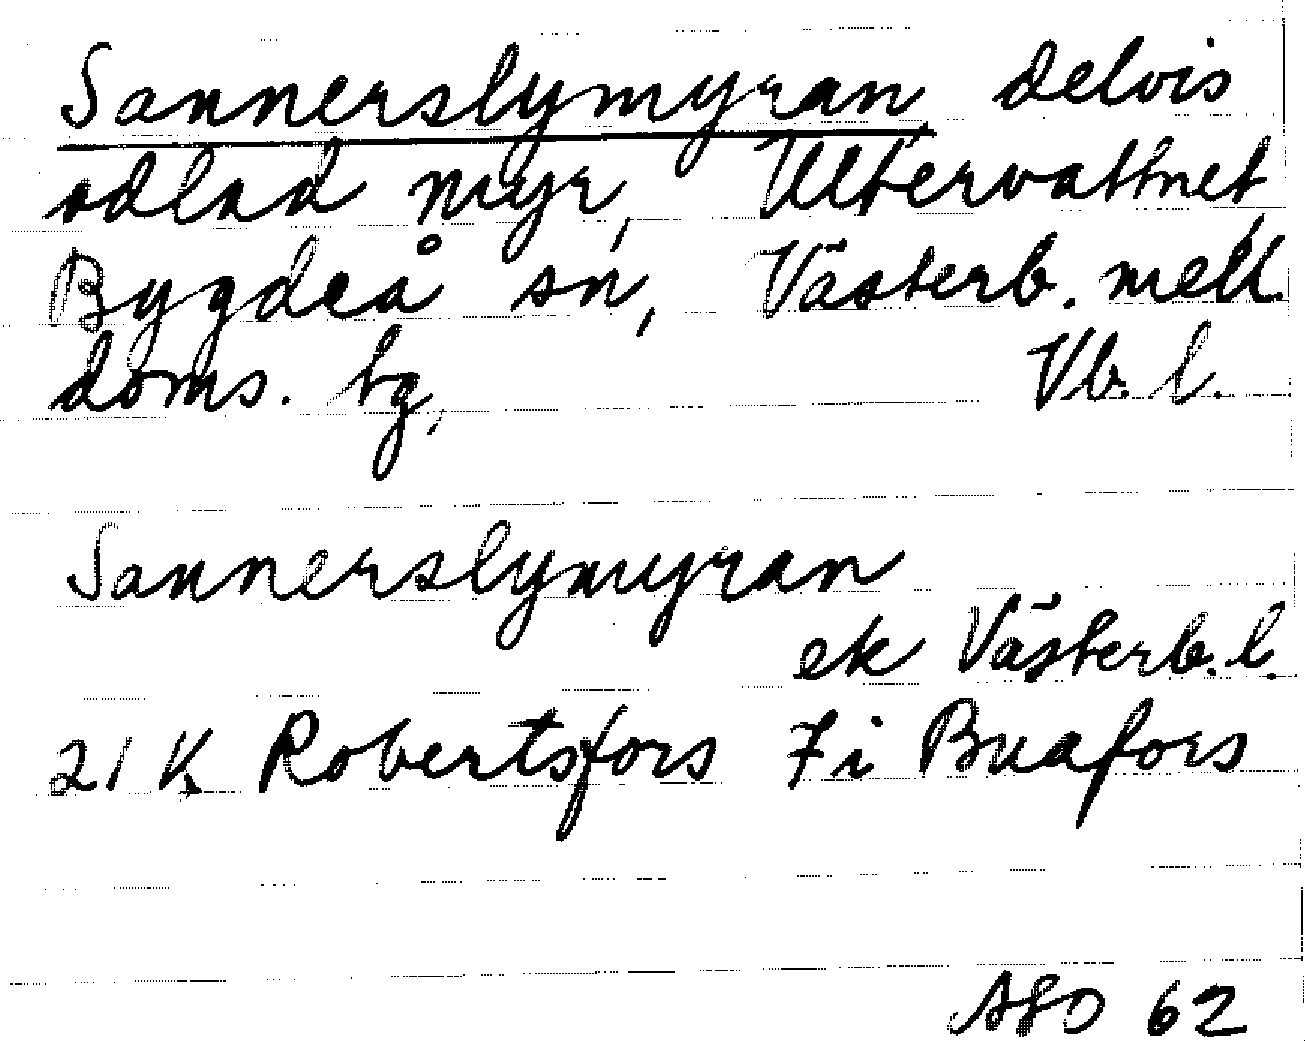 Sannerslymyran, delvis
odlad myr, Ultervattnet,
Bygdeå sn, Västerb. mell.
doms. bg, Vb. l.
Sannerslymyran
ek Västerb. l.
21 K Robertsfors 7 i Buafors
62